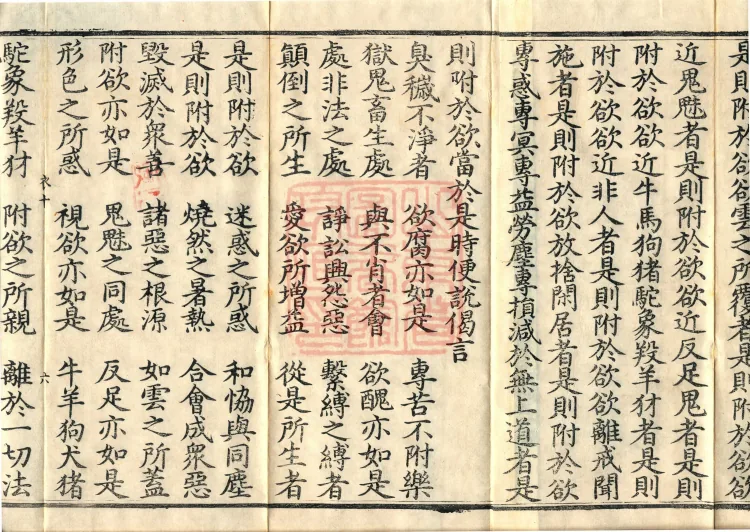 是則附於欲欲雲之所覆者是則附於欲
近鬼魅者是則附於欲欲近反足鬼者是則
附於欲欲近牛馬狗猪駝象羖羊犲者是則
附於欲欲近非人者是則附於欲欲離戒聞
施者是則附於欲放捨閑居者是則附於欲
專惑專冥專益勞塵專損減於無上道者是
則附於欲當於是時便說偈言
臭穢不淨者 欲腐亦如是 專苦不附樂
獄鬼畜生處 與不肖者會 欲醜亦如是
處非法之處 諍訟興怨惡 繫縛之縛者
顛倒之所生 愛欲所增益 從是所生者
是則附於欲 迷惑之所惑 和恊與同塵
是則附於欲 燒然之暑熱 合會成衆惡
毀滅於衆善 諸惡之根源 如雲之所蓋
附欲亦如是 鬼魅之同處 反足亦如是
形色之所惑 視欲亦如是 牛羊狗犬猪
衣十 六
駝象羖羊犲 附欲之所親 離於一切法